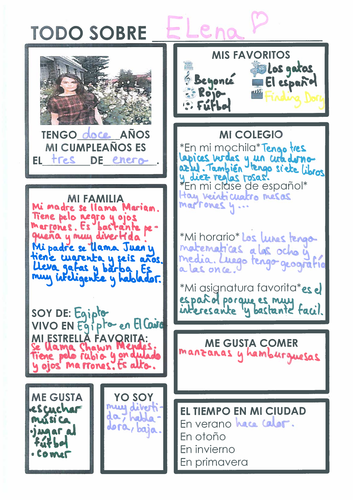 TODO SOBRE Elena
TENGO doce AÑOS
MI CUMPLEAÑOS ES
EL tres DE enero.
MIS FAVORITOS
Beyoncé
Rojo
Fútbol
Los gatos
El español
Finding Dory
MI FAMILIA
Mi madre se llama Mariam.
Tiene pelo negro y ojos
marrones. Es bastante pe-
queña y muy divertida
Mi padre se llama Juan y
tiene cuarenta y seis años.
Lleva gafas y barba. Es
muy inteligente y hablador.
SOY DE: Egipto
VIVO EN Egipto en El Cairo
MI ESTRELLA FAVORITA:
Se llama Shawn Mendes.
Tiene pelo rubio y ondulado
y ojos marrones. Es alto.
MI COLEGIO
*En mi mochila* Tengo tres
lapices verdes y un cuaderno
azul. También tengo siete libros
y diez reglas rosas.
*En mi clase de español*
Hay veinticuatro mesas
marrones y...
*Mi horario* Los lunes tengo
matematicas a las ocho y
media. Luego tengo geografía
a las once.
*Mi asignatura favorita* es el
español porque es muy
interesante y bastante facil.
ME GUSTA COMER
manzanas y hamburguesas
ME GUSTA
•escuchar
música
•jugar al
fútbol
•comer
YO SOY
muy diverti-
da, habla-
dora, baja.
EL TIEMPO EN MI CIUDAD
En verano hace calor.
En otoño
En invierno
En primavera